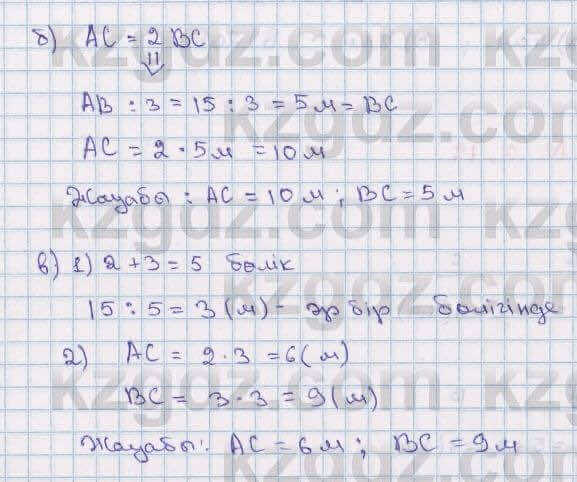 б) AC = 2 BC
⇓
AB : 3 = 15 : 3 = 5 м = BC
AC = 2 · 5 м = 10 м
Жауабы : AC = 10 м ; BC = 5 м
в) 1) 2 + 3 = 5 бөлік
15 : 5 = 3 (м) - әр бір бөлігінде
2) AC = 2 · 3 = 6 (м)
BC = 3 · 3 = 9 (м)
Жауабы : AC = 6 м ; BC = 9 м
kzgdz.com